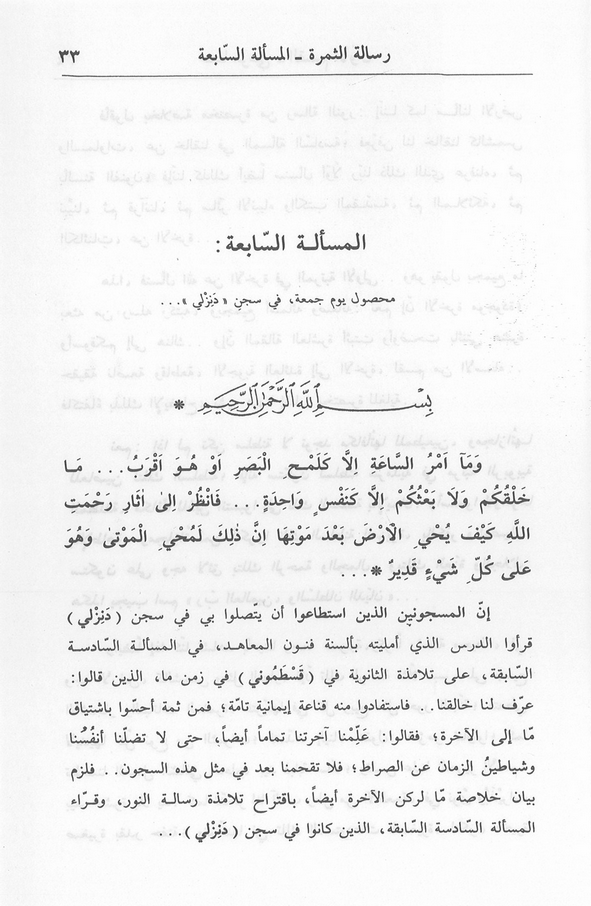 رسالة الثمرة ـ المسألة السّابعة ٣٣
المسألـة السّابعة:
محصول يوم جمعة، في سجن « دَنِزْلي »...
بِسْمِ اللَّهِ الرَّحْمَنِ الرَّحِيمِ *
وَمَآ اَمْرُ السَّاعَةِ اِلاَّ كَلَمْحِ الْبَصَرِ اَوْ هُوَ اَقْرَبُ... مَا
خَلْقُكُمْ وَلَا بَعْثُكُمْ اِلاَّ كَنَفْسٍ وَاحِدَةٍ... فَانْظُرْ اِلىٰ اٰثَارِ رَحْمَتِ
اللَّهِ كَيْفَ يُحْيِ الْاَرْضَ بَعْدَ مَوْتِهَا اِنَّ ذٰلِكَ لَمُحْيِ الْمَوْتىٰ وَهُوَ
عَلىٰ كُلِّ شَيْءٍ قَدِيرٌ *...
إنّ المسجونين الذين استطاعوا أن يتّصلوا بي في سجن ( دَنِزْلي )
قرأوا الدرس الذي أمليته بألسنة فنون المعاهد، في المسألـة السّادسـة
السّابقة، على تلامذة الثانوية في ( قَسْطَمُوني ) في زمن ما، الذين قالوا:
عرّف لنا خالقنا.. فاستفادوا منه قناعة إيمانية تامّة؛ فمن ثمة أحسّوا باشتياق
مّا إلى الآخرة؛ فقالوا: عَلِّمْنا آخرتنا تماماً أيضاً، حتى لا تضلّنا أنفُسُنا
وشياطينُ الزمان عن الصراط؛ فلا تقحمنا بعد في مثل هذه السجون.. فلزم
بيان خلاصة مّا لركن الآخرة أيضاً، باقتراح تلامذة رسالـة النور، وقـرّاء
المسألة السّادسة السّابقة، الذين كانوا في سجن ( دَنِزْلي )...